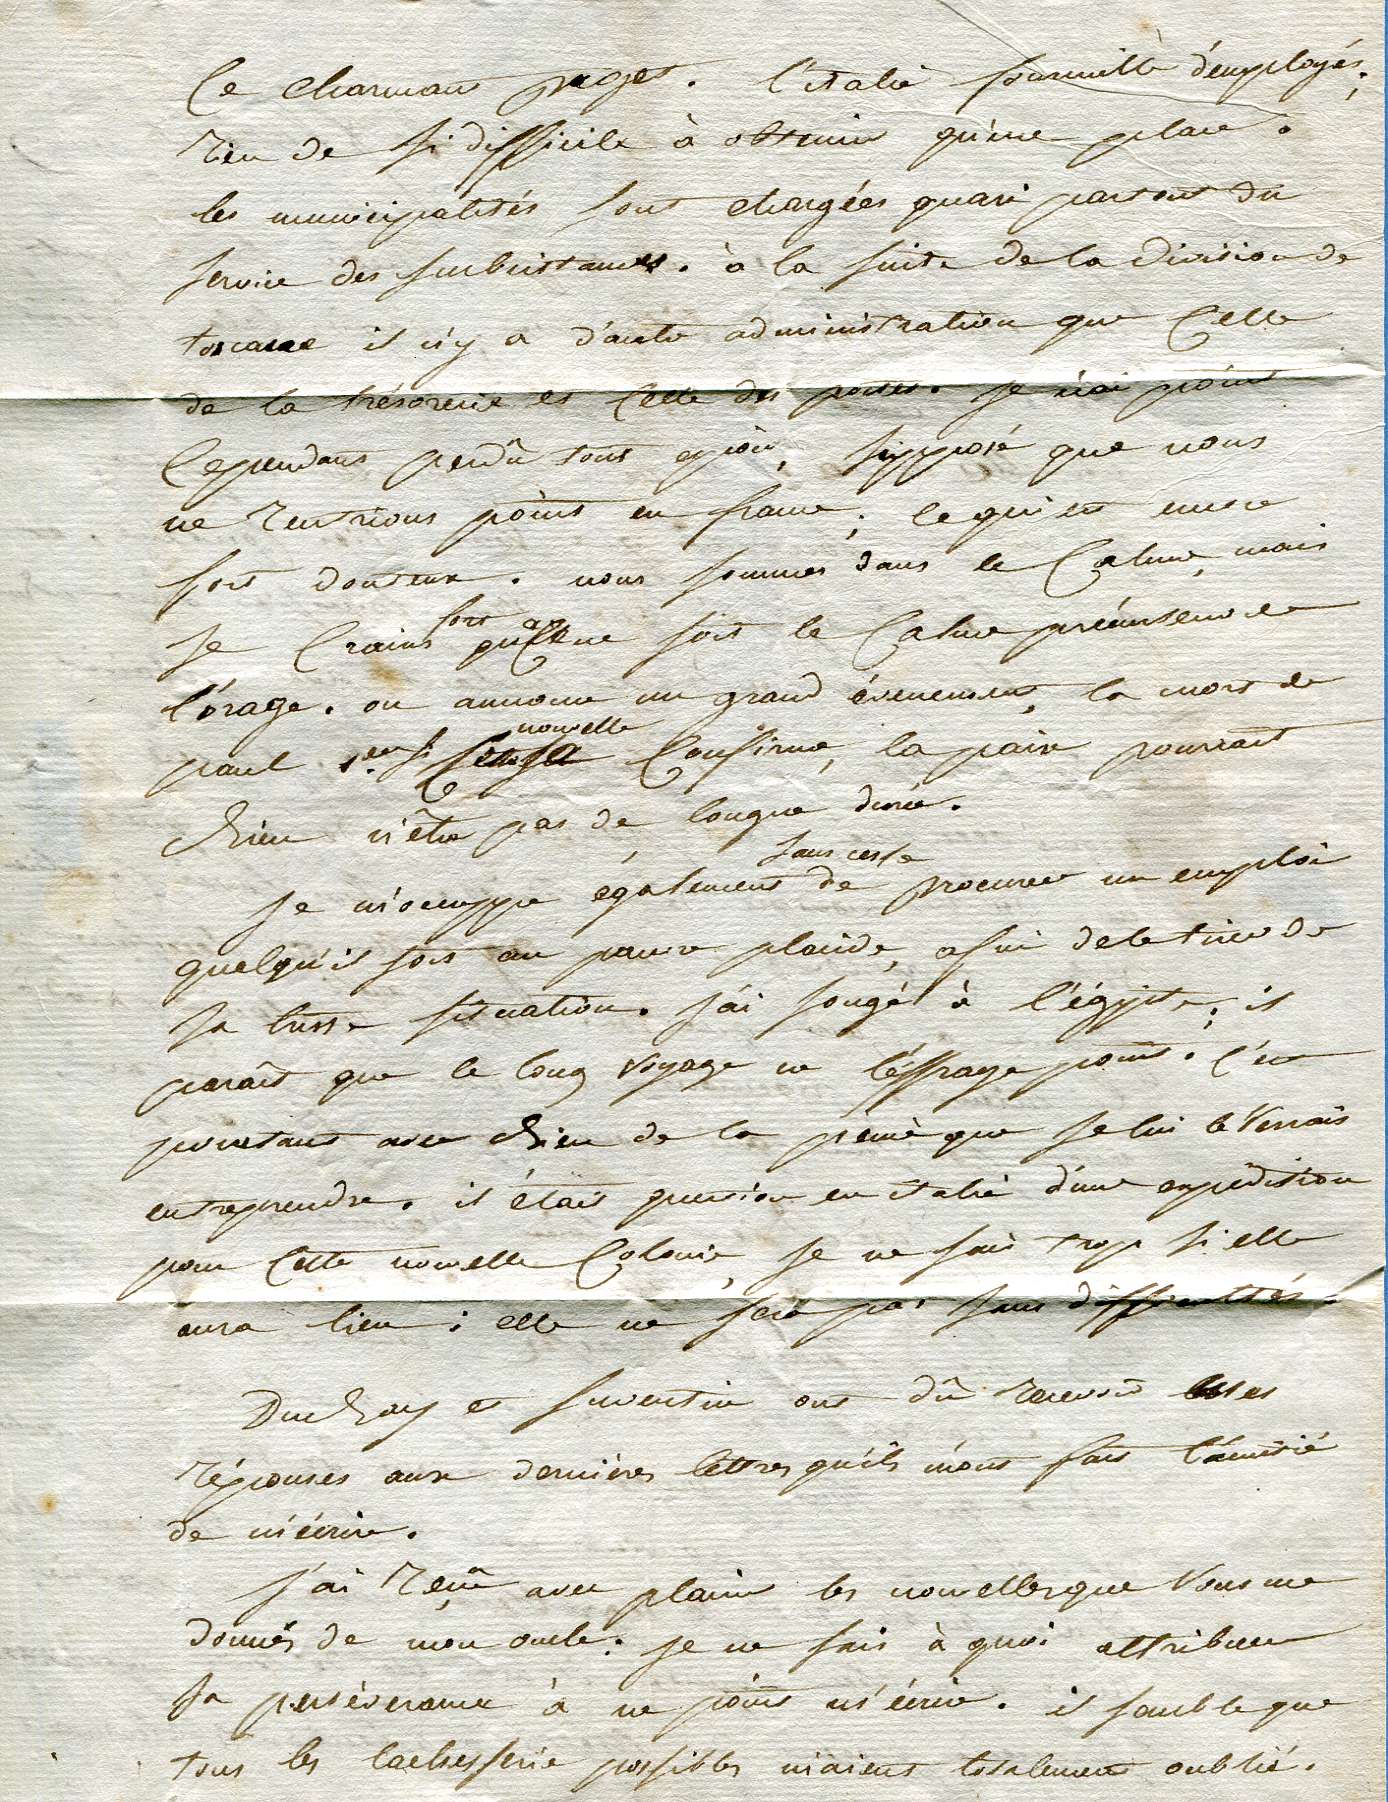 Ce charmant projet. l'italie fourmille d'employés;
rien de si difficile à obtenir qu'une place.
les municipalités sont chargées quasi partout du
service des subsistances. à la suite de la division de
toscane il n'y a d'autre administration que Celle
de la trésorerie et Celle des postes. je n'ai point
Cependant perdu tout espoir, supposé que nous
ne rentrions point en france; ce qui est encore
fort douteux. nous sommes dans le Calme, mais
je Crains fort que Ce ne soit le Calme précurseur de
l'orage. on annonce un grand évenement, la mort de
paul 1er. si Cette nouvelle Se Confirme, la paix pourrait
bien n'être pas de longue durée.
je m'occuppe également sans cesse de procurer un emploi
quelqu'il soit au pauvre placide, afin de le tirer de
sa triste situation. j'ai songé à l'égypte; il
paraît que le long voyage ne l'éffraye point. C'est
pourtant avec bien de la peine que je lui le verrais
entreprendre. il était question en italie d'une expédition
pour Cette nouvelle Colonie, je ne sais trop si elle
aura lieu; elle ne sera pas sans difficultés.
et ont dû recevoir
réponses aux dernières lettres qu'ils m'ont fait l'amitié
de m'écrire.
j'ai reçu avec plaisir les nouvelles que vous me
donnés de mon oncle. je ne sais à quoi attribuer
sa persévérance à ne point m'écrire. il semble que
tous les possibles m'aient totalement oublié.